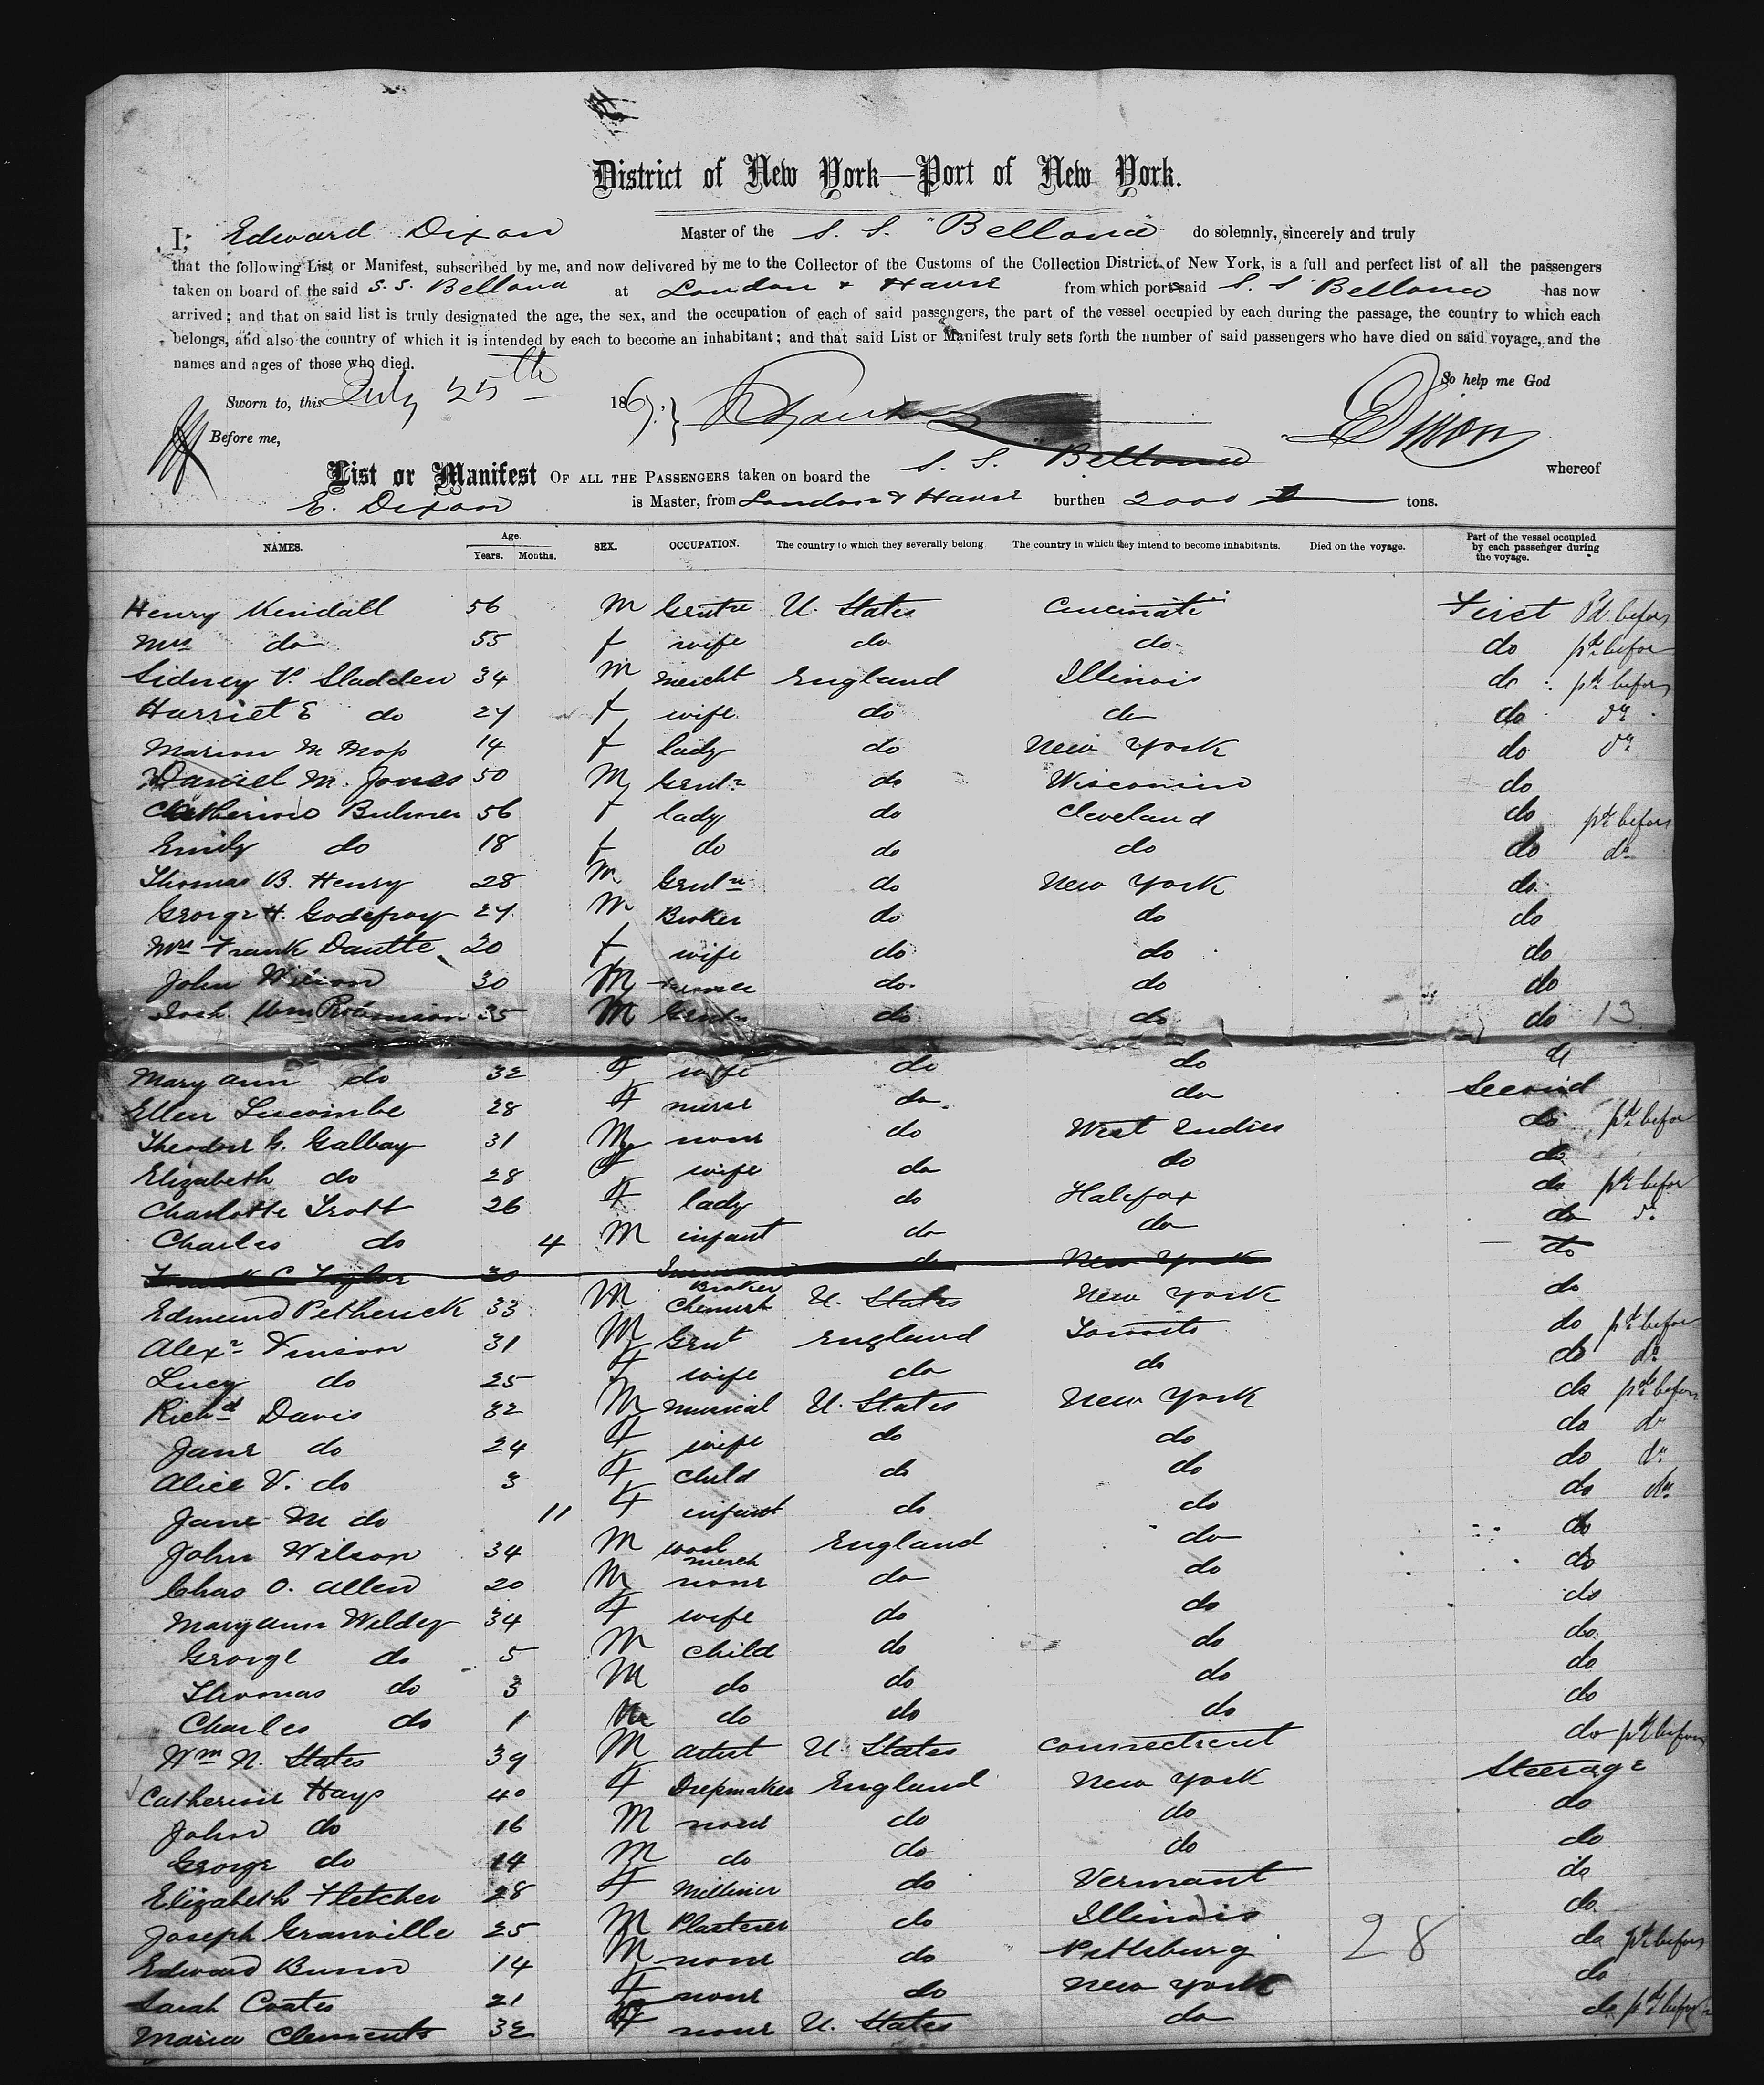 District of New York—Port of New York.
I, Edward Dixon Master of the S. S. "Bellona" do solemnly, sincerely and truly
that the following List or Manifest, subscribed by me, and now delivered by me to the Collector of the Customs of the Collection District of New York, is a full and perfect list of all the passengers
taken on board of the said S.S. Bellona at London & Havre from which port said S. S Bellona has now
arrived; and that on said list is truly designated the age, the sex, and the occupation of each of said passengers, the part of the vessel occupied by each during the passage, the country to which each
belongs, and also the country of which it is intended by each to become an inhabitant; and that said List or Manifest truly sets forth the number of said passengers who have died on said voyage, and the
names and ages of those who died.
So help me God
Sworn to, this July 25th 1867. } EDixon
Before me,
List or Manifest OF ALL THE PASSENGERS taken on board the S. S. "Bellona whereof
E. Dixon is Master, from London & Havre burthen 2000 tons.
NAMES. Age. Years. Months. SEX. OCCUPATION. The country to which they severally belong. The country in which they intend to become inhabitants. Died on the voyage. Part of the vessel occupied by each passenger during the voyage.
Henry Kendall 56 M Gentn U. States Cincinati First Pd. before
Mrs do 55 f wife do do do pd. before
Sidney V. Sladden 34 M Mercht England Illinois do pd. before
Harriet E do 27 f wife do do do do
Marion M Moss 14 f lady do New York do do
Daniel M. Jones 50 M Gentn do Wisconsin do
Catherine Bulmer 56 f lady do Cleveland do pd. before
Emily do 18 f do do do do do
Thomas B. Henry 28 M Gentn do New York do
George H. Godefroy 27 M Broker do do do
Mrs Frank Dautte 20 f wife do do do
John Wilson 30 M do do do
Wm Robinson 35 M Gentn do do do 13
Mary Ann do 32 F wife do do d
Ellen Luscombe 28 F nurse do do Second
Theodore G. Galbay 31 M none do West Indies do pd. before
Elizabeth do 28 F wife do do do
Charlotte Trott 26 F lady do Halifax do pd. before
Charles do 4 M infant do do do do
Taylor 30 do New York do
Edmund Petherick 33 M Broker Chemist U. States New York do
Alexr Vinson 31 M Gent England Toronto do pd. before
Lucy do 25 F wife do do do do
Richd Davis 32 M Musical U. States New York do pd. before
Jane do 24 F wife do do do do
Alice V. do 3 F Child do do do do
Jane M do 11 F infant do do do do
John Wilson 34 M wool merch England do do
Chas O. Allen 20 M none do do do
Mary Ann Wildey 34 F wife do do do
George do 5 M Child do do do
Thomas do 3 M do do do do
Charles do 1 M do do do do
Wm N. States 39 M Artist U. States Connecticut do pd. before
Catherine Hays 40 F Dressmaker England New York Steerage
John do 16 M none do do do
George do 14 M do do do do
Elizabeth Fletcher 28 F Milliner do Vermont do
Joseph Granville 25 M Plasterer do Illinois do
Edward Bunn 14 M none do Pittsburg 28 do pd. before
Sarah Coates 21 F none do New York do
Maria Clements 32 F none U. States do do pd. before